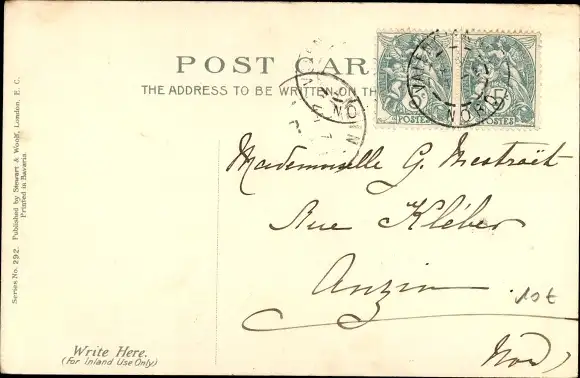 POST CAR
THE ADDRESS TO BE WRITTEN ON TH
5 POSTES
5 POSTES
NORD
Mademoiselle G.
Rue Kléber
Anzin
Nord
Write Here.
(For Inland Use Only)
Series No. 292. Published by Stewart & Woolf, London, E. C.
Printed in Bavaria.